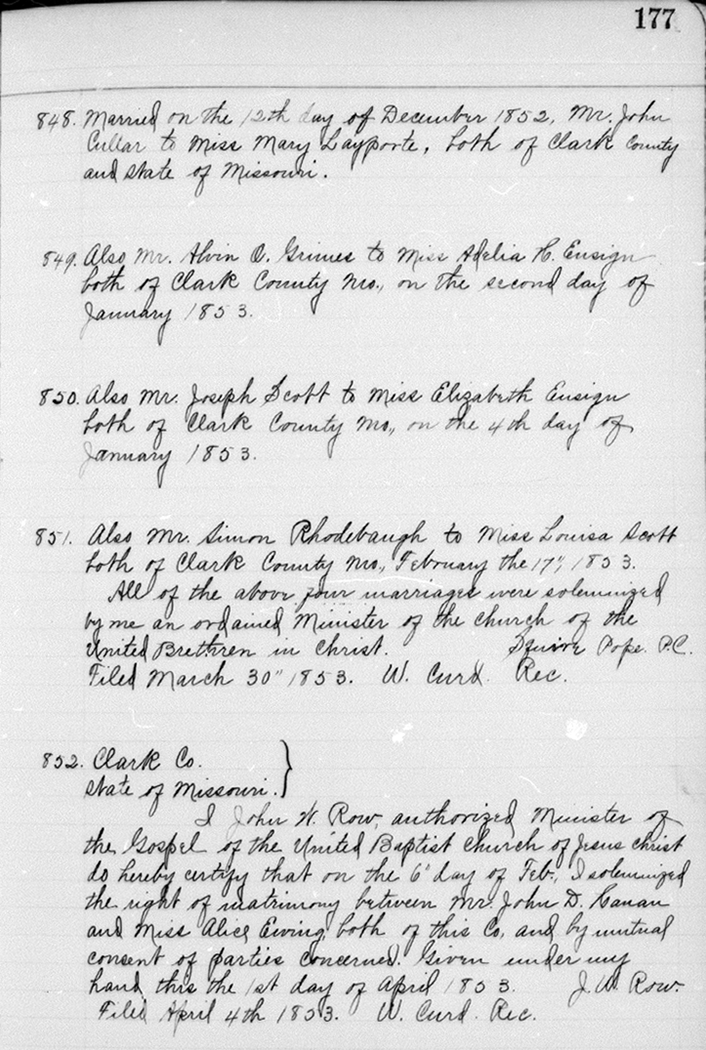 177
848. Married on the 12th day of December 1852, Mr. John
Cullar to Miss Mary Layporte, both of Clark County
and State of Missouri.
849. Also Mr. Alvin O. Grimes to Miss Adelia H. Ensign
both of Clark County Mo., on the second day of
January 1853.
850. Also Mr. Joseph Scott to Miss Elizabeth Ensign
both of Clark County Mo., on the 4th day of
January 1853.
851. Also Mr. Simon Rhodebaugh to Miss Louisa Scott
both of Clark County Mo., February the 17", 1853.
All of the above four marriages were solemnized
by me an ordained Minister of the church of the
United Brethren in Christ. Squire Pope. P.C.
Filed March 30" 1853. W. Curd. Rec.
852. Clark Co.
State of Missouri. }
I John W. Row, authorized Minister of
the Gospel of the United Baptist Church of Jesus Christ
do hereby certify that on the 6" day of Feb., I solemnized
the right of matrimony between Mr. John D. Hanan
and Miss Alice Ewing, both of this Co, and by mutual
consent of parties concerned. Given under my
hand this the 1st day of April 1853. J. W. Row.
Filed April 4th 1853. W. Curd. Rec.